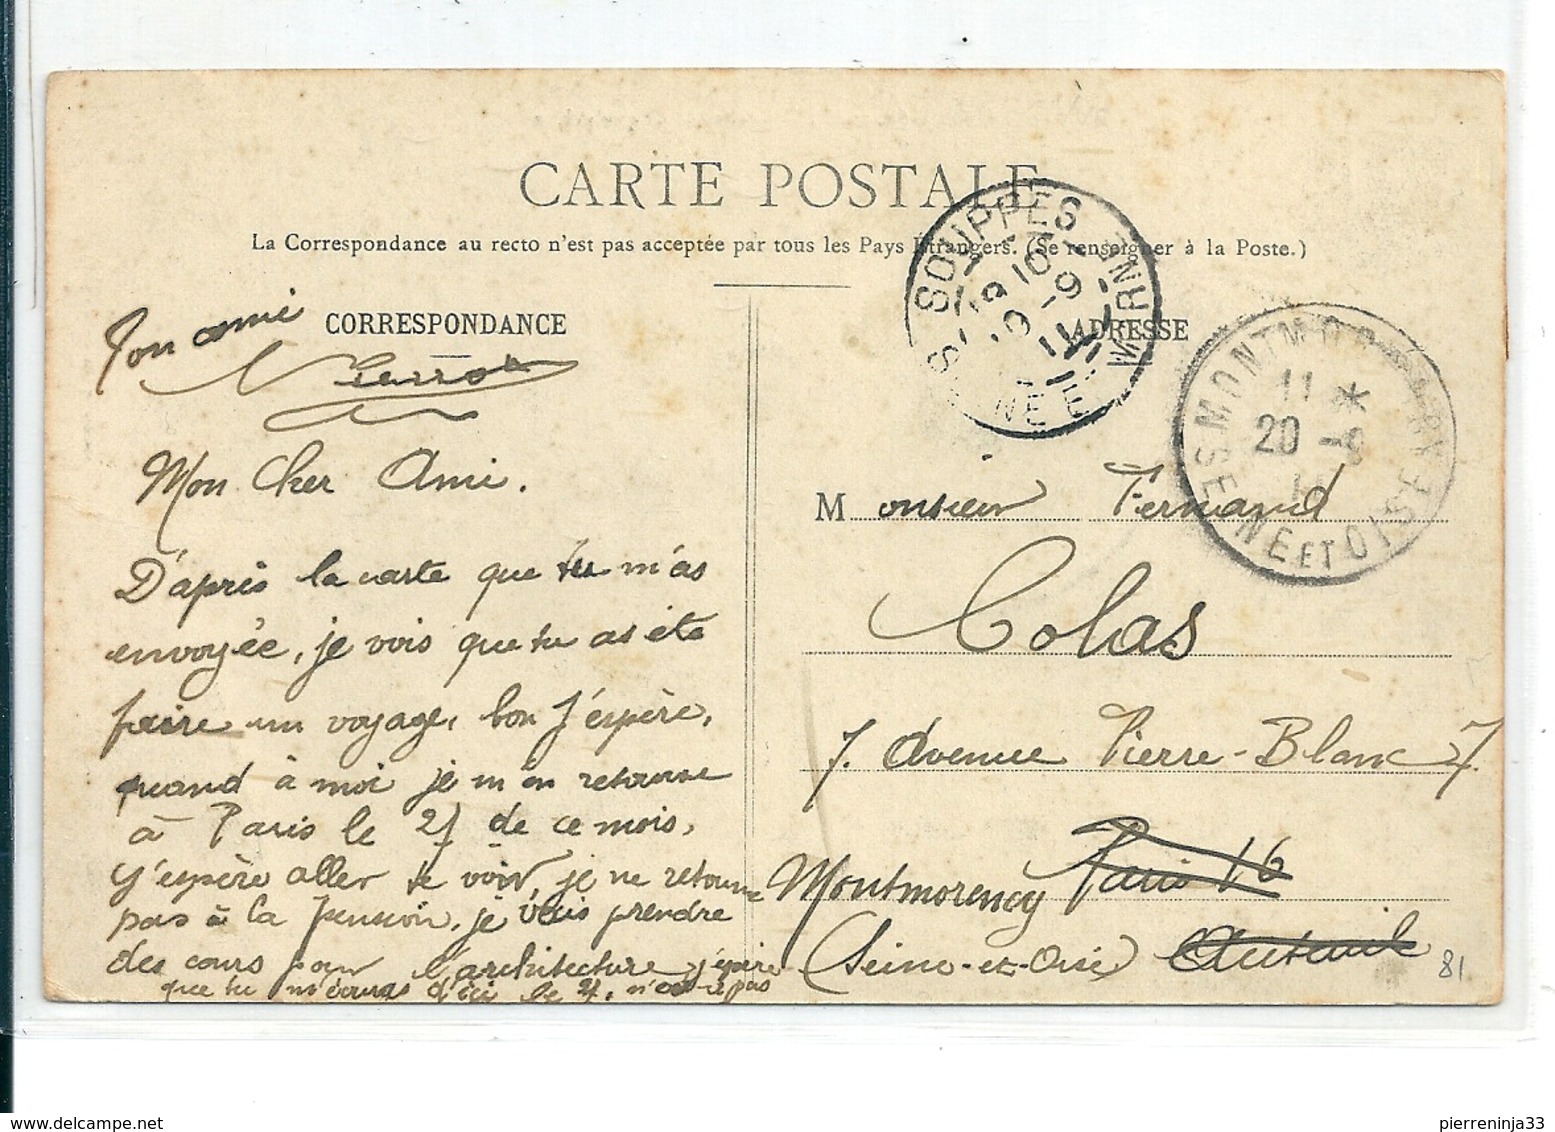 CARTE POSTALE
La Correspondance au recto n'est pas acceptée par tous les Pays Etrangers. (Se renseigner à la Poste.)
CORRESPONDANCE
ADRESSE
Ton ami
Pierrot
Mon Cher Ami.
D'après la carte que tu m'as
envoyée, je vois que tu as été
faire un voyage, bon j'espère,
quand à moi je m'en retourne
à Paris le 27 de ce mois,
j'espère aller te voir, je ne retourne
pas à la Pension, je vais prendre
des cours pour l'architecture j'espère
que tu m'écriras d'ici le 27, n'est-ce pas
SOUPPES
SEINE ET MARNE
10
19 -9
11
MONTMORENCY
SEINE ET OISE
11 *
20 -9
11
Monsieur Fernand
Colas
7. Avenue Pierre-Blanc 7
Montmorency Paris 16
Seine-et-Oise Auteuil
81
pierreninja33